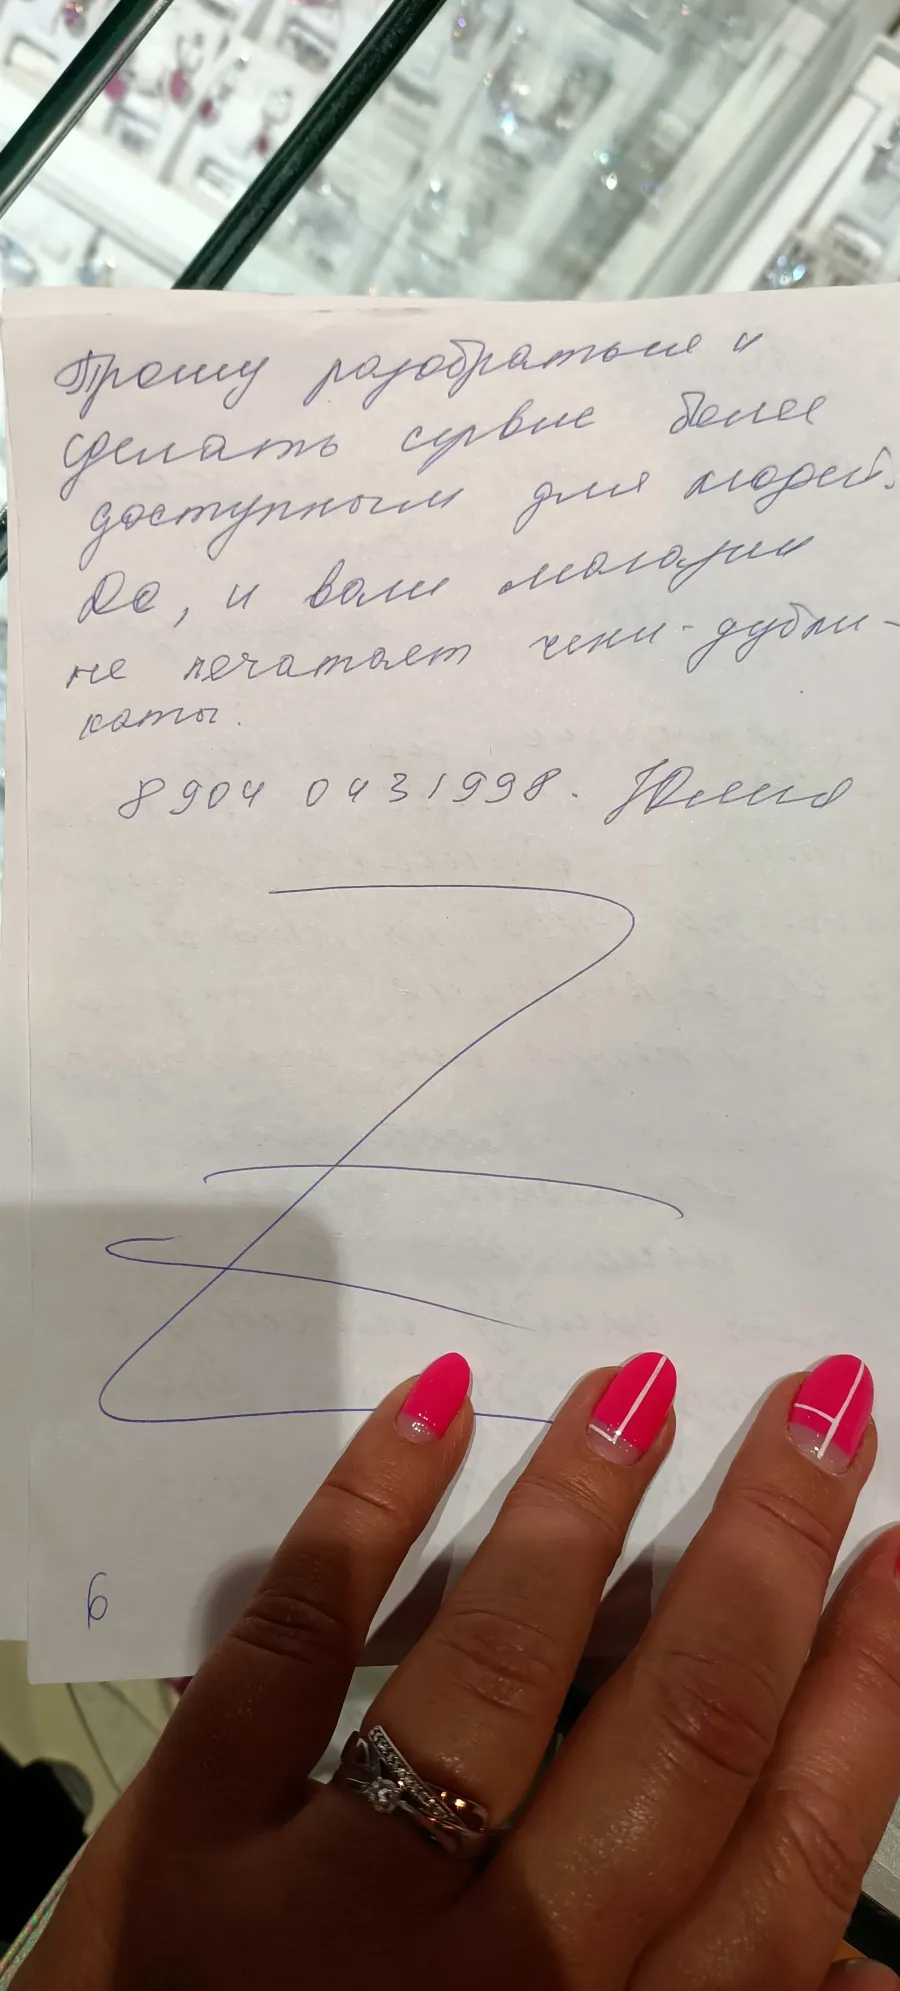 Прошу разобраться и
сделать сервис более
доступным для людей.
Да, и ваш магазин
не печатает чеки-дубли-
каты.
8904 0431998. Юлия
6